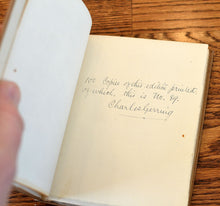 100 Copies of this edition printed
of which, this is No. 89.
Charles Gerring